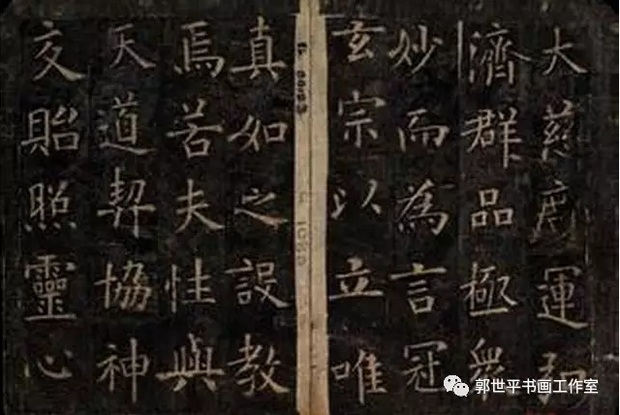 大慈運弘
濟群品極衆
妙而為言冠
玄宗以立唯
真如之設教
焉若夫性與
天道契協神
交貽照靈心
郭世平书画工作室